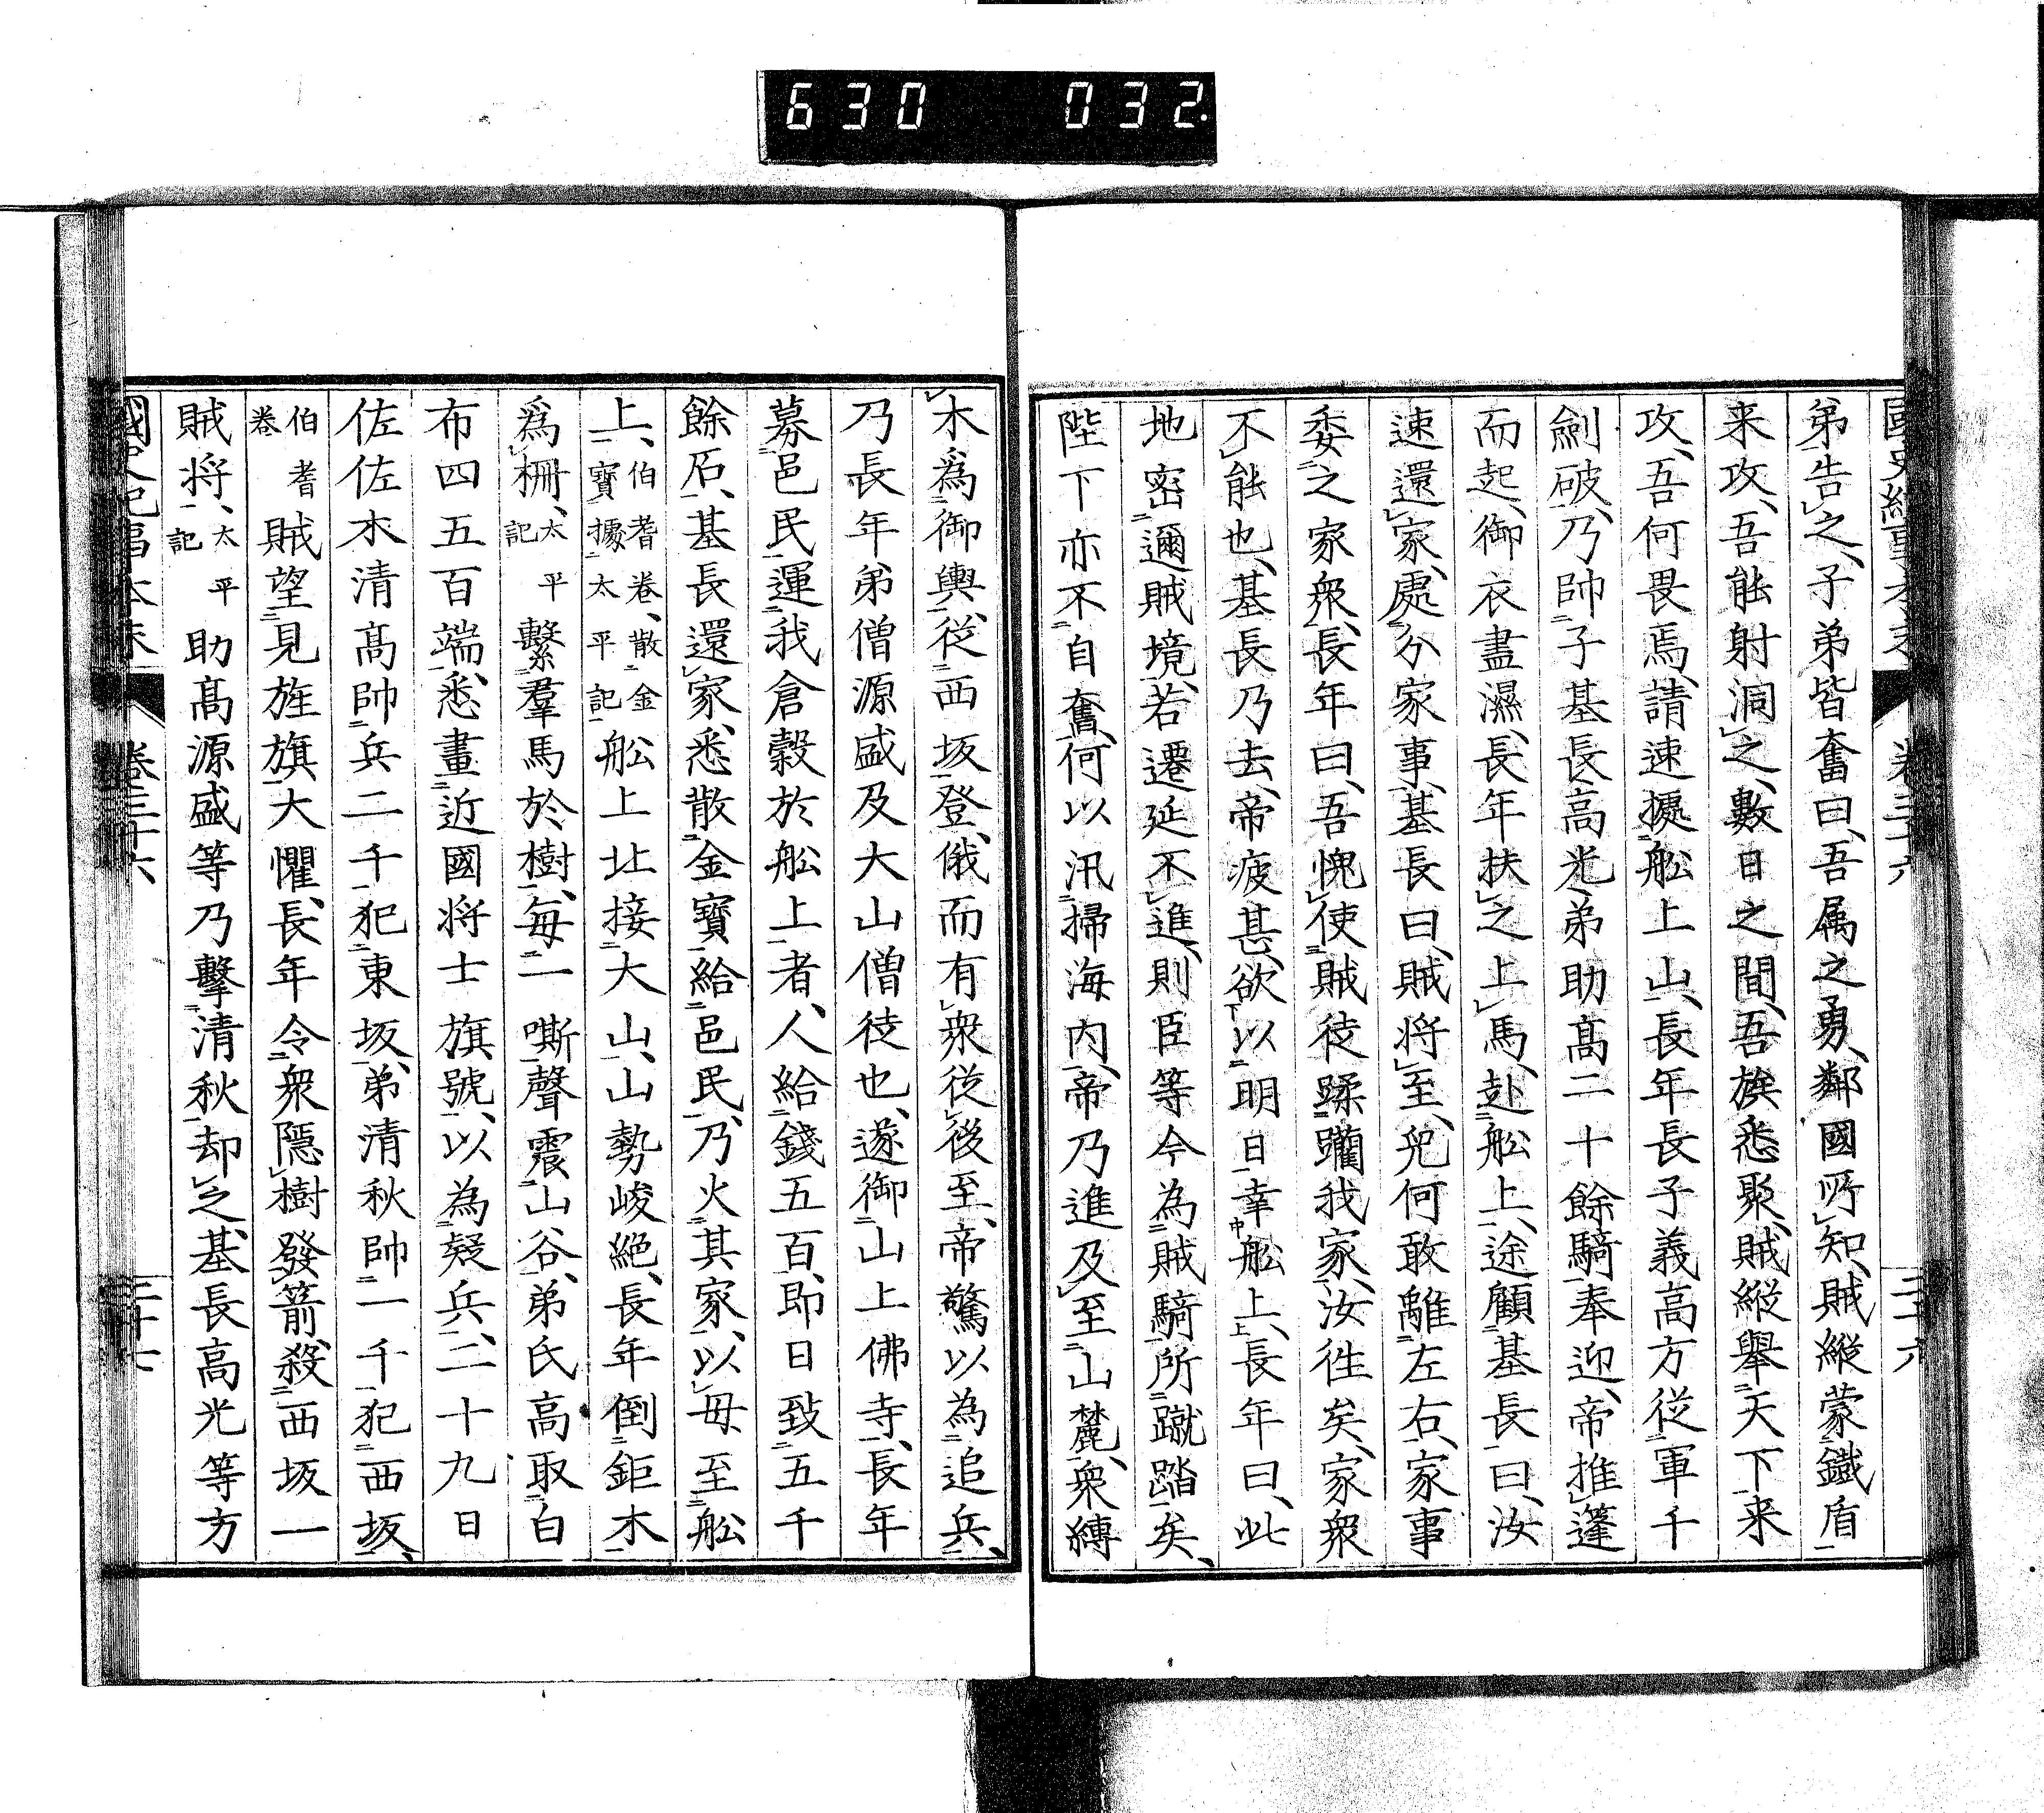 630 032
國史紀事本末 卷三十六 二十六
弟告之、子弟皆奮曰、吾属之勇、鄰國所知、賊縱蒙鐵盾
来攻、吾能射洞之、數日之間、吾族悉聚、賊縱舉天下来
攻、吾何畏焉、請速據舩上山、長年長子義高方從軍千
劍破、乃帥子基長高光、弟助高二十餘騎奉迎、帝推篷
而起、御衣盡濕、長年扶之上馬、赴舩上、途顧基長曰、汝
速還家、處分家事、基長曰、賊将至、兒何敢離左右、家事
委之家衆、長年曰、吾愧使賊徒蹂躪我家、汝往矣、家衆
不能也、基長乃去、帝疲甚、欲以明日幸舩上、長年曰、此
地密邇賊境、若遷延不進、則臣等今為賊騎所蹴踏矣、
陛下亦不自奮、何以汛掃海内、帝乃進及至山麓、衆縛
木爲御輿、從西坂登、俄而有衆從後至、帝驚以為追兵、
乃長年弟僧源盛及大山僧徒也、遂御山上佛寺、長年
募邑民運我倉穀於舩上者、人給錢五百、即日致五千
餘石、基長還家、悉散金寶給邑民、乃火其家、以毋至舩
上、伯耆卷、散金寶據太平記 舩上北接大山、山勢峻絶、長年倒鉅木
爲柵、太平記 繫羣馬於樹、每一嘶聲震山谷、弟氏高取白
布四五百端、悉畫近國将士旗號、以為疑兵、二十九日
佐佐木清高帥兵二千犯東坂、弟清秋帥一千犯西坂、
伯耆卷 賊望見旌旗大懼、長年令衆隱樹發箭、殺西坂一
賊将、太平記 助高源盛等乃擊清秋却之、基長高光等方
國史紀事本末 卷三十六 二十七